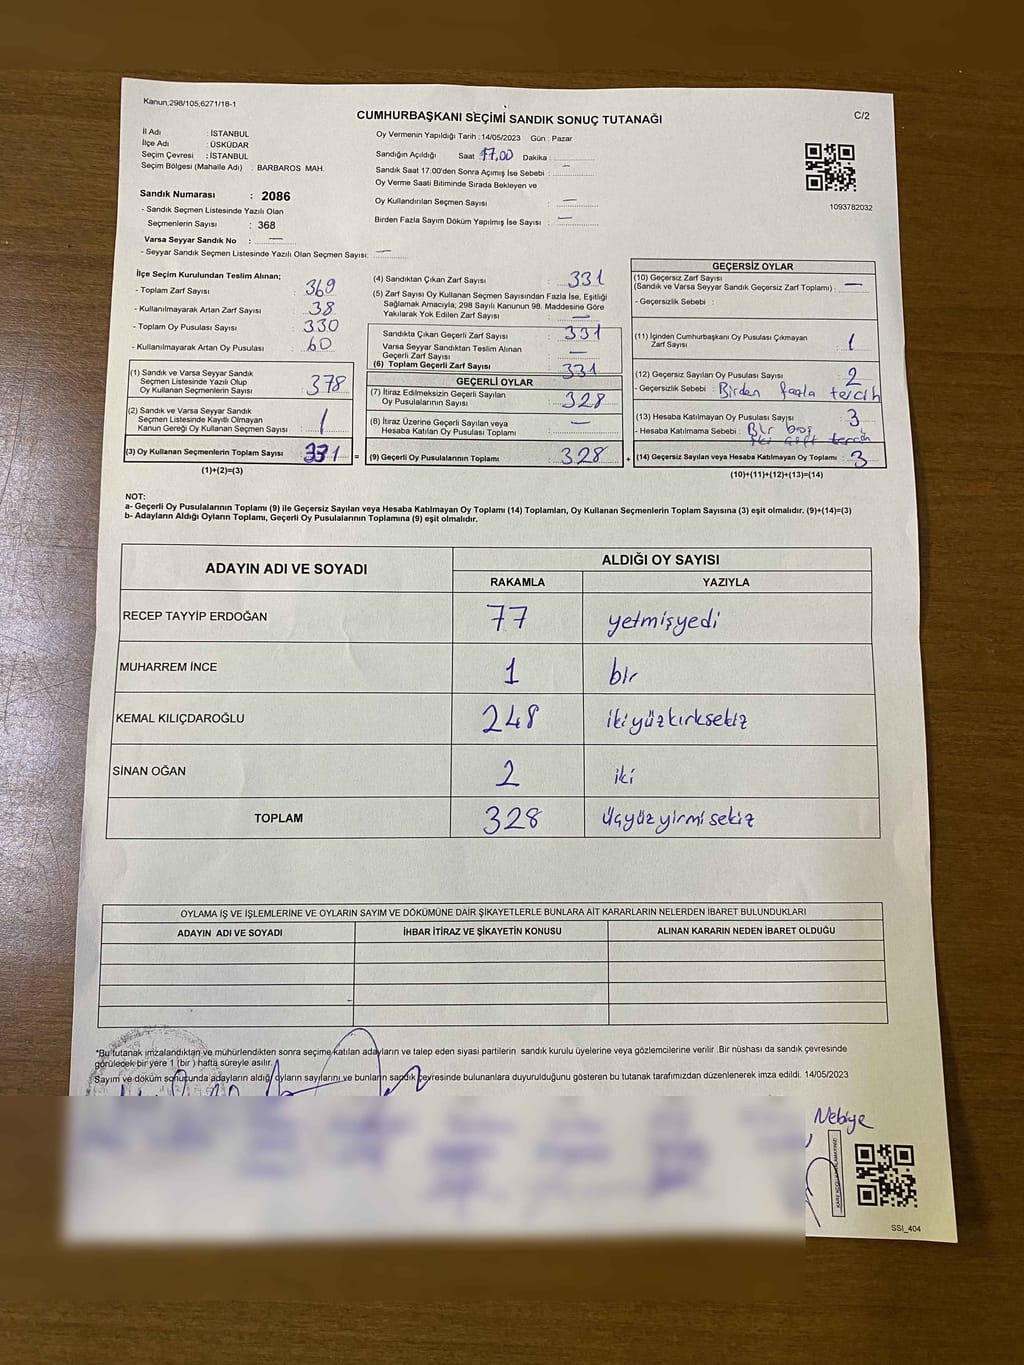 Kanun;298/105,6271/18-1
CUMHURBAŞKANI SEÇİMİ SANDIK SONUÇ TUTANAĞI
C/2
İl Adı : İSTANBUL
İlçe Adı : ÜSKÜDAR
Seçim Çevresi : İSTANBUL
Seçim Bölgesi (Mahalle Adı) : BARBAROS MAH.
Sandık Numarası : 2086
- Sandık Seçmen Listesinde Yazılı Olan
Seçmenlerin Sayısı : 368
Varsa Seyyar Sandık No : —
- Seyyar Sandık Seçmen Listesinde Yazılı Olan Seçmen Sayısı: —
Oy Vermenin Yapıldığı Tarih : 14/05/2023 Gün : Pazar
Sandığın Açıldığı Saat 17,00 Dakika :
Sandık Saat 17:00'den Sonra Açımış İse Sebebi : —
Oy Verme Saati Bitiminde Sırada Bekleyen ve
Oy Kullandırılan Seçmen Sayısı : —
Birden Fazla Sayım Döküm Yapılmış İse Sayısı : —
1093782032
İlçe Seçim Kurulundan Teslim Alınan;
- Toplam Zarf Sayısı : 369
- Kullanılmayarak Artan Zarf Sayısı : 38
- Toplam Oy Pusulası Sayısı : 330
- Kullanılmayarak Artan Oy Pusulası : 60
(1) Sandık ve Varsa Seyyar Sandık
Seçmen Listesinde Yazılı Olup
Oy Kullanan Seçmenlerin Sayısı : 378
(2) Sandık ve Varsa Seyyar Sandık
Seçmen Listesinde Kayıtlı Olmayan
Kanun Gereği Oy Kullanan Seçmen Sayısı : 1
(3) Oy Kullanan Seçmenlerin Toplam Sayısı : 331
(1)+(2)=(3)
(4) Sandıktan Çıkan Zarf Sayısı : 331
(5) Zarf Sayısı Oy Kullanan Seçmen Sayısından Fazla İse, Eşitliği
Sağlamak Amacıyla; 298 Sayılı Kanunun 98. Maddesine Göre
Yakılarak Yok Edilen Zarf Sayısı : —
Sandıkta Çıkan Geçerli Zarf Sayısı : 331
Varsa Seyyar Sandıktan Teslim Alınan
Geçerli Zarf Sayısı : —
(6) Toplam Geçerli Zarf Sayısı : 331
GEÇERLİ OYLAR
(7) İtiraz Edilmeksizin Geçerli Sayılan
Oy Pusulalarının Sayısı : 328
(8) İtiraz Üzerine Geçerli Sayılan veya
Hesaba Katılan Oy Pusulası Toplamı : —
= (9) Geçerli Oy Pusulalarının Toplamı : 328 +
GEÇERSİZ OYLAR
(10) Geçersiz Zarf Sayısı
(Sandık ve Varsa Seyyar Sandık Geçersiz Zarf Toplamı) : —
- Geçersizlik Sebebi :
(11) İçinden Cumhurbaşkanı Oy Pusulası Çıkmayan
Zarf Sayısı : 1
(12) Geçersiz Sayılan Oy Pusulası Sayısı : 2
- Geçersizlik Sebebi : Birden fazla tercih
(13) Hesaba Katılmayan Oy Pusulası Sayısı : 3
- Hesaba Katılmama Sebebi : Bir boş
iki çift tercih
(14) Geçersiz Sayılan veya Hesaba Katılmayan Oy Toplamı : 3
(10)+(11)+(12)+(13)=(14)
NOT:
a- Geçerli Oy Pusulalarının Toplamı (9) ile Geçersiz Sayılan veya Hesaba Katılmayan Oy Toplamı (14) Toplamları, Oy Kullanan Seçmenlerin Toplam Sayısına (3) eşit olmalıdır. (9)+(14)=(3)
b- Adayların Aldığı Oyların Toplamı, Geçerli Oy Pusulalarının Toplamına (9) eşit olmalıdır.
ADAYIN ADI VE SOYADI ALDIĞI OY SAYISI
RAKAMLA YAZIYLA
RECEP TAYYİP ERDOĞAN 77 yetmişyedi
MUHARREM İNCE 1 bir
KEMAL KILIÇDAROĞLU 248 ikiyüzkırksekiz
SİNAN OĞAN 2 iki
TOPLAM 328 üçyüzyirmisekiz
OYLAMA İŞ VE İŞLEMLERİNE VE OYLARIN SAYIM VE DÖKÜMÜNE DAİR ŞİKAYETLERLE BUNLARA AİT KARARLARIN NELERDEN İBARET BULUNDUKLARI
ADAYIN ADI VE SOYADI İHBAR İTİRAZ VE ŞİKAYETİN KONUSU ALINAN KARARIN NEDEN İBARET OLDUĞU
*Bu tutanak imzalandıktan ve mühürlendikten sonra seçime katılan adayların ve talep eden siyasi partilerin sandık kurulu üyelerine veya gözlemcilerine verilir .Bir nüshası da sandık çevresinde
görülecek bir yere 1 (bir) hafta süreyle asılır.
Sayım ve döküm sonucunda adayların aldığı oyların sayılarını ve bunların sandık çevresinde bulunanlara duyurulduğunu gösteren bu tutanak tarafımızdan düzenlenerek imza edildi. 14/05/2023
Nebiye
SSI_404